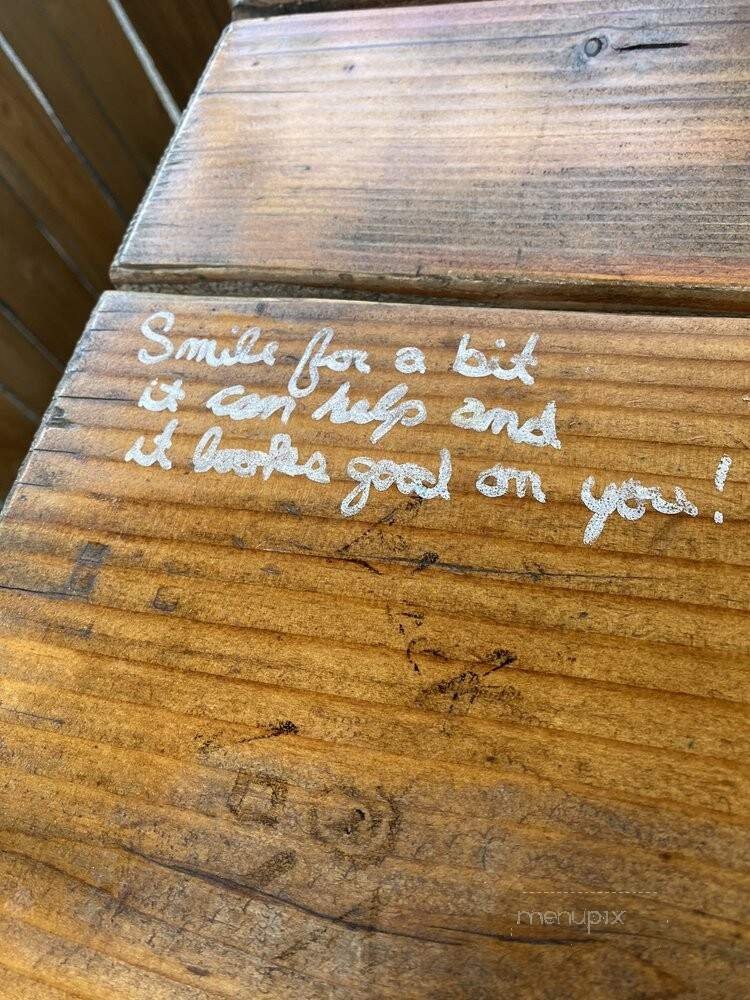 Smile for a bit
it can help and
it looks good on you!
menupix